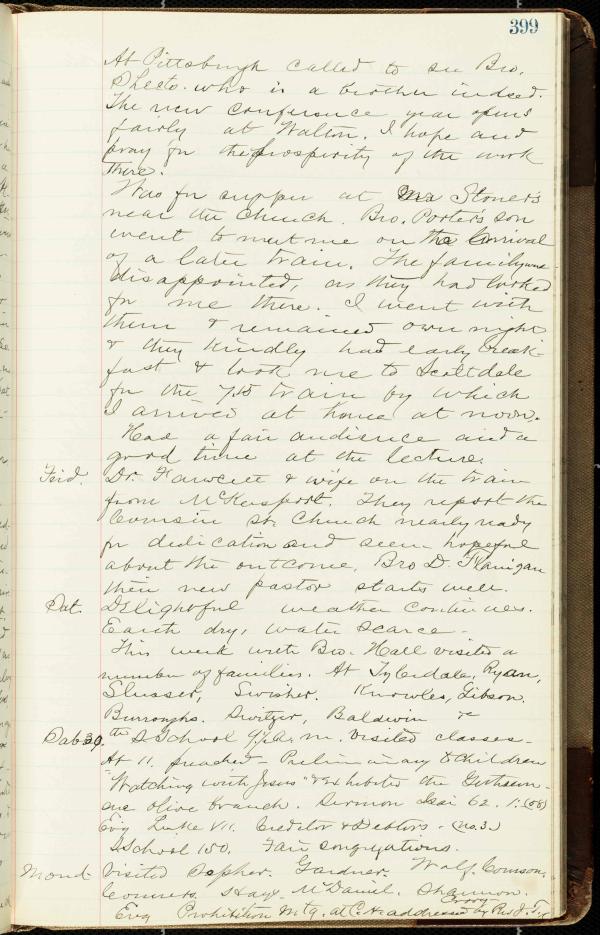 399
At Pittsburgh called to see Bro.
who is a brother indeed.
The new conference year opens
fairly at Walton. I hope and
pray for the prosperity of the work
there.
Was for supper at Mr Stoner's
near the church. Bro. Porter's son
went to meet me on the arrival
of a later train. The family was
disappointed, as they had looked
for me there. I went with
them & remained over night
& they kindly had early break-
fast & took me to Scottdale
for the 7.15 train by which
I arrived at home at noon.
Had a fair audience and a
good time at the lecture.
Frid. Dr. Fawcett & wife on the train
from McKeesport. They report the
Cousin St. Church nearly ready
for dedication and seem hopeful
about the outcome. Bro D. Flanigan
their new pastor starts well.
Sat. Delightful weather continues.
Earth dry, water scarce.
This week with Bro. Hall visited a
number of families. At Tylerdale, Ryan,
Slusser, Swisher. Knowles, Gibson.
Burroughs. Switzer, Baldwin &c
Sab 30. SSchool 9½ a.m. visited classes -
At 11. preached - Preliminary to children
"Watching with Jesus" & exhibited the Gethsem-
ane olive branch. Sermon Isai 62. 1. (58)
Evg Luke VII. Creditor & Debtors - (No. 3.)
SSchool 150. Fair congregations.
Mond - Visited Gardner. Wolf.
Hays. McDaniel. Shannon.
Evg Prohibition Mtg. at C.H. addressed by Rev. J. T.